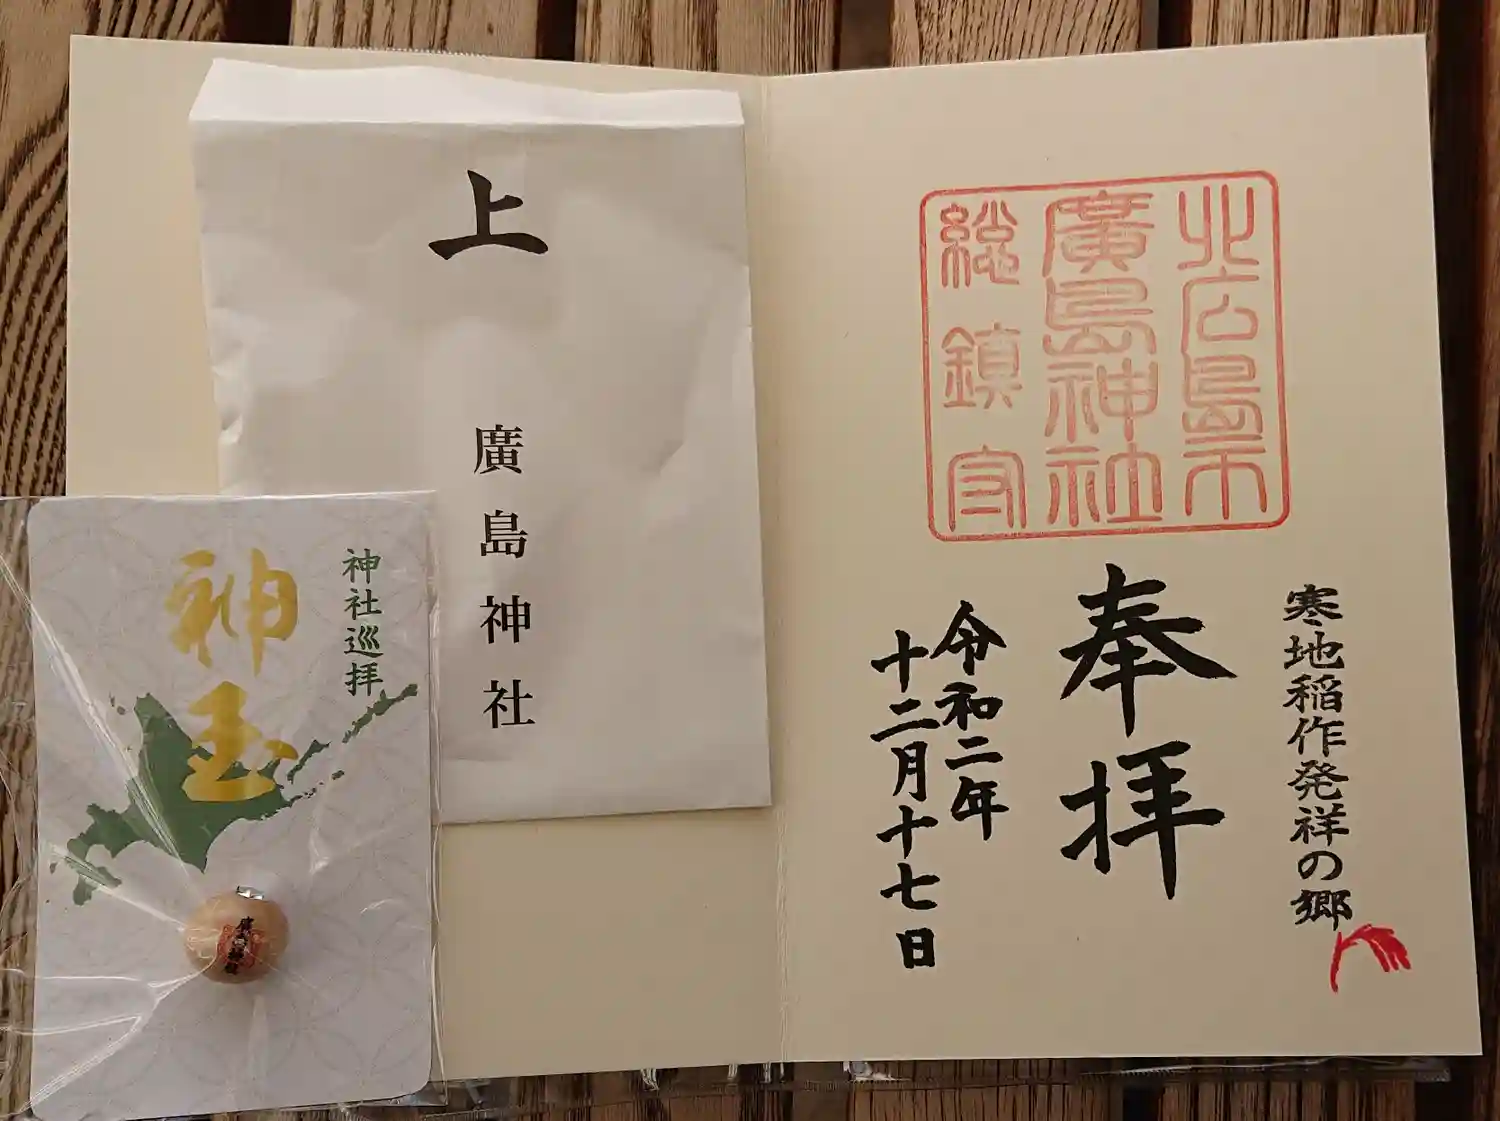 北広島市
廣島神社
総鎮守
寒地稲作発祥の郷
奉拝
令和二年
十二月十七日
上
廣島神社
神社巡拝
神玉
廣島神社